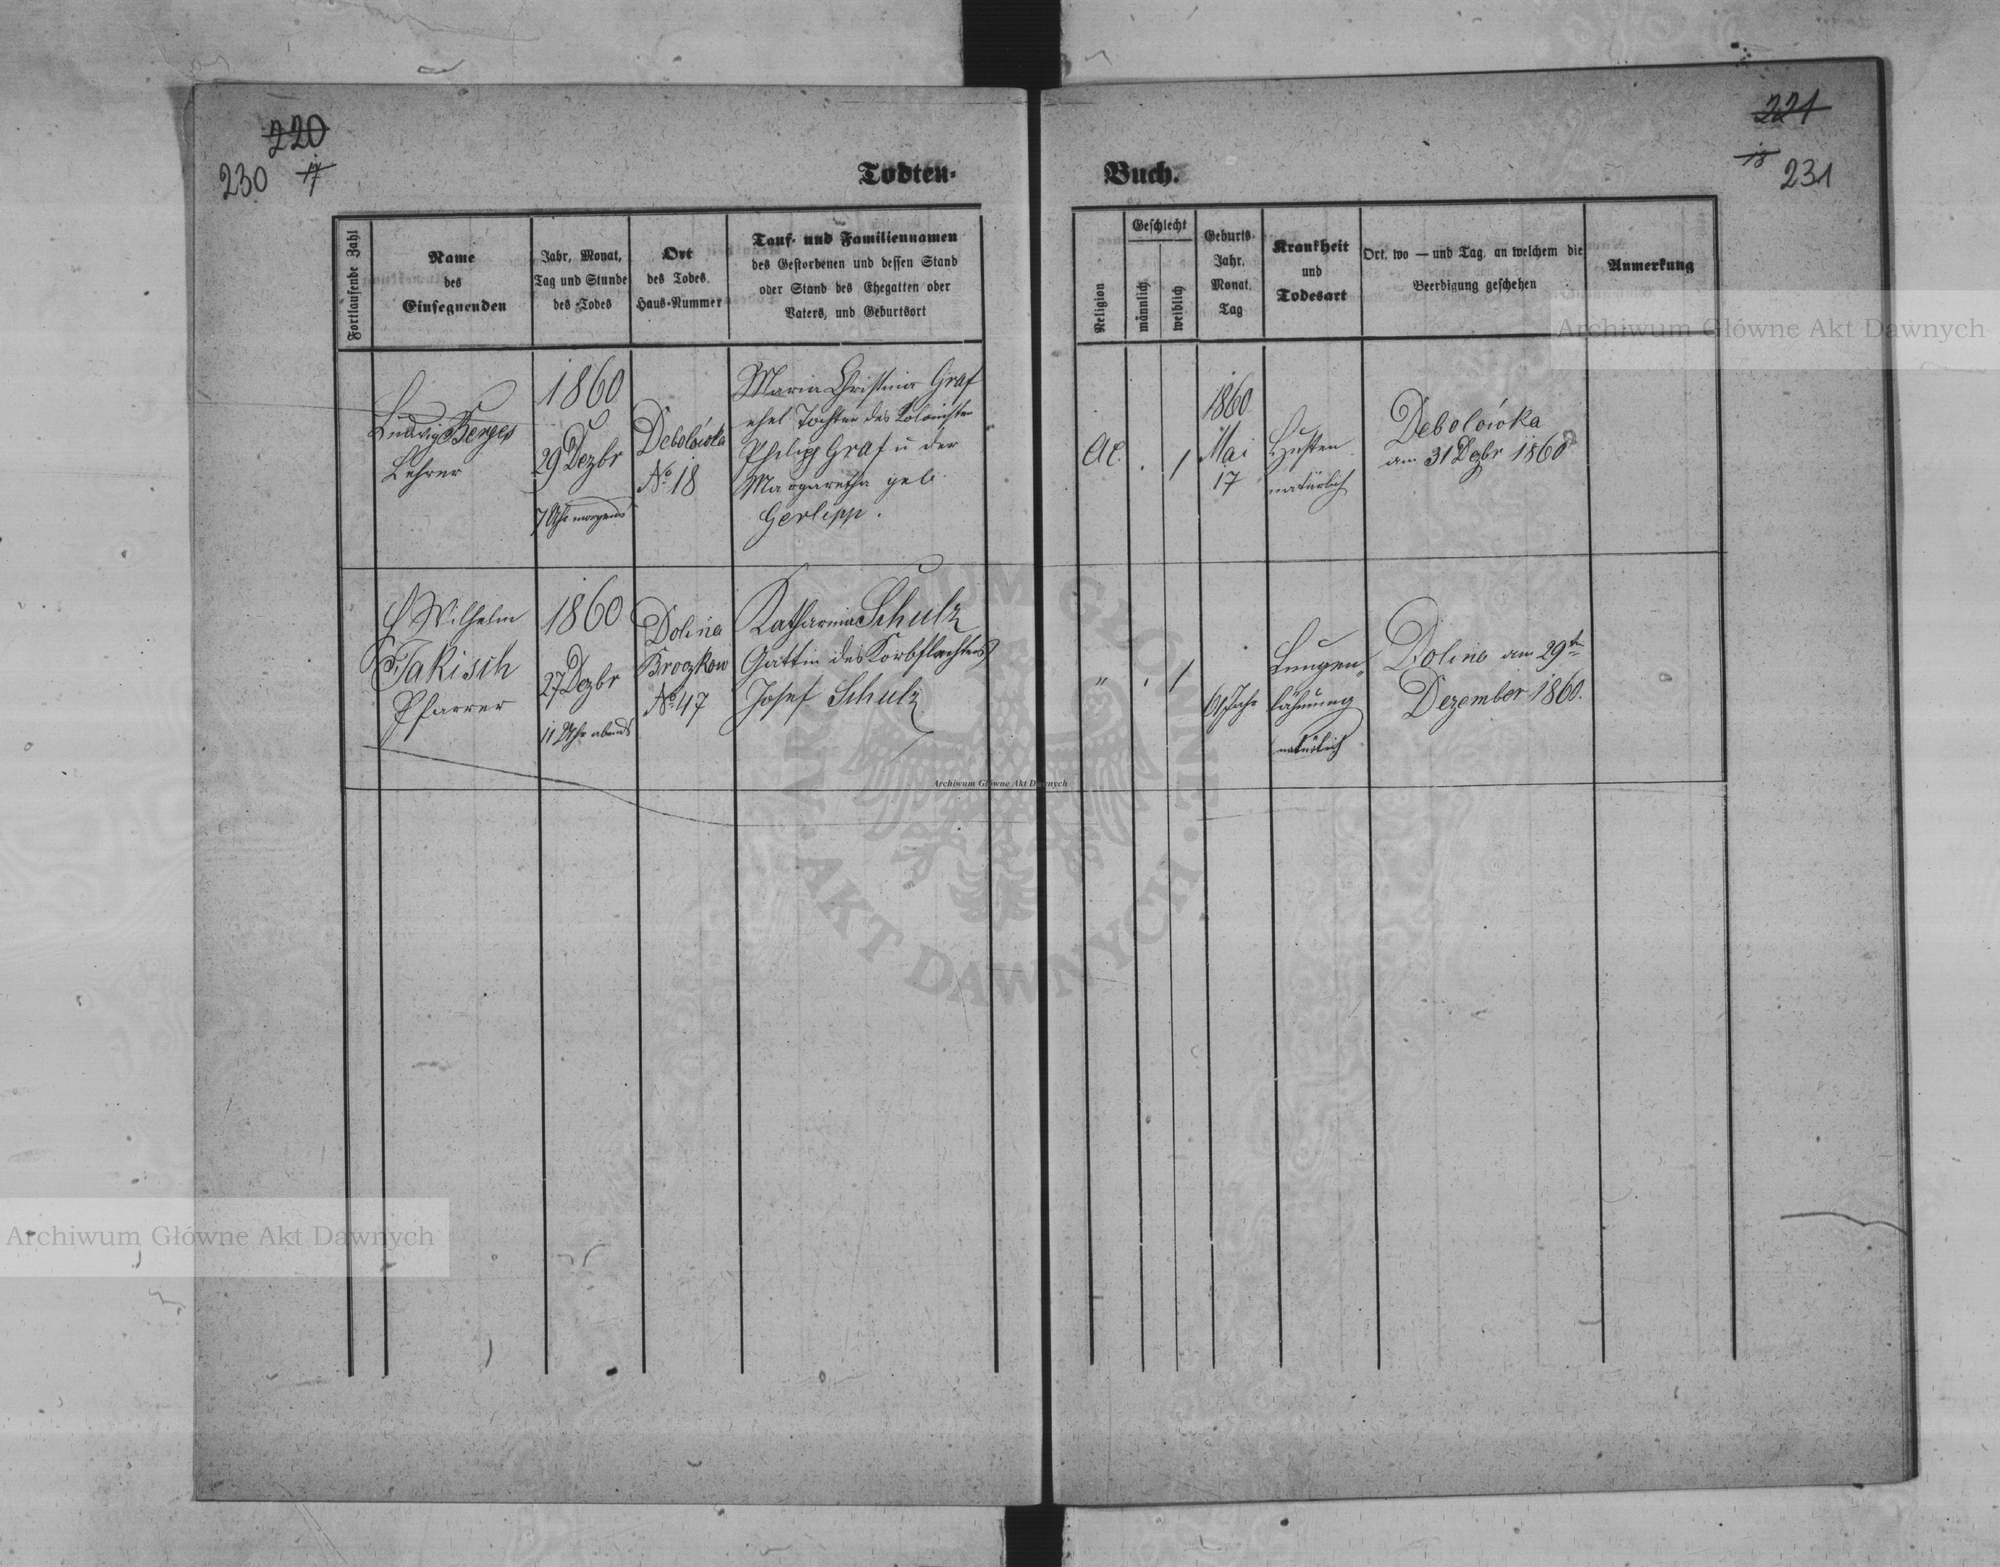 220
230
17
Todten-
Buch.
221
18
231
Fortlaufende Zahl
Name
des
Einsegnenden
Jahr, Monat,
Tag und Stunde
des Todes
Ort
des Todes.
Haus-Nummer
Tauf- und Familiennamen
des Gestorbenen und dessen Stand
oder Stand des Ehegatten oder
Vaters, und Geburtsort
Religion
Geschlecht
männlich
weiblich
Geburts-
Jahr,
Monat,
Tag
Krankheit
und
Todesart
Ort, wo — und Tag, an welchem die
Beerdigung geschehen
Anmerkung
Ludwig Berges
Lehrer
1860
29 Dezbr
7 Uhr morgens
Debolówka
No 18
Maria Christina Graf
ehel Tochter des Kolonisten
Philipp Graf u der
Margaretha geb.
Gerlipp.
AC.
1860
Mai
17
Husten
natürlich
Debolówka
am 31 Dezbr 1860
Wilhelm
Jakisch
Pfarrer
1860
27 Dezbr
11 Uhr abends
Dolina
Broczkow
No 47
Katharina Schulz
Gattin des Korbflechters
Josef Schulz
"
61 Jahr
Lungen-
lähmung
natürlich
Dolina am 29ten
Dezember 1860.
Archiwum Główne Akt Dawnych
Archiwum Główne Akt Dawnych
Archiwum Główne Akt Dawnych
ARCHIWUM GŁÓWNE · AKT DAWNYCH ·